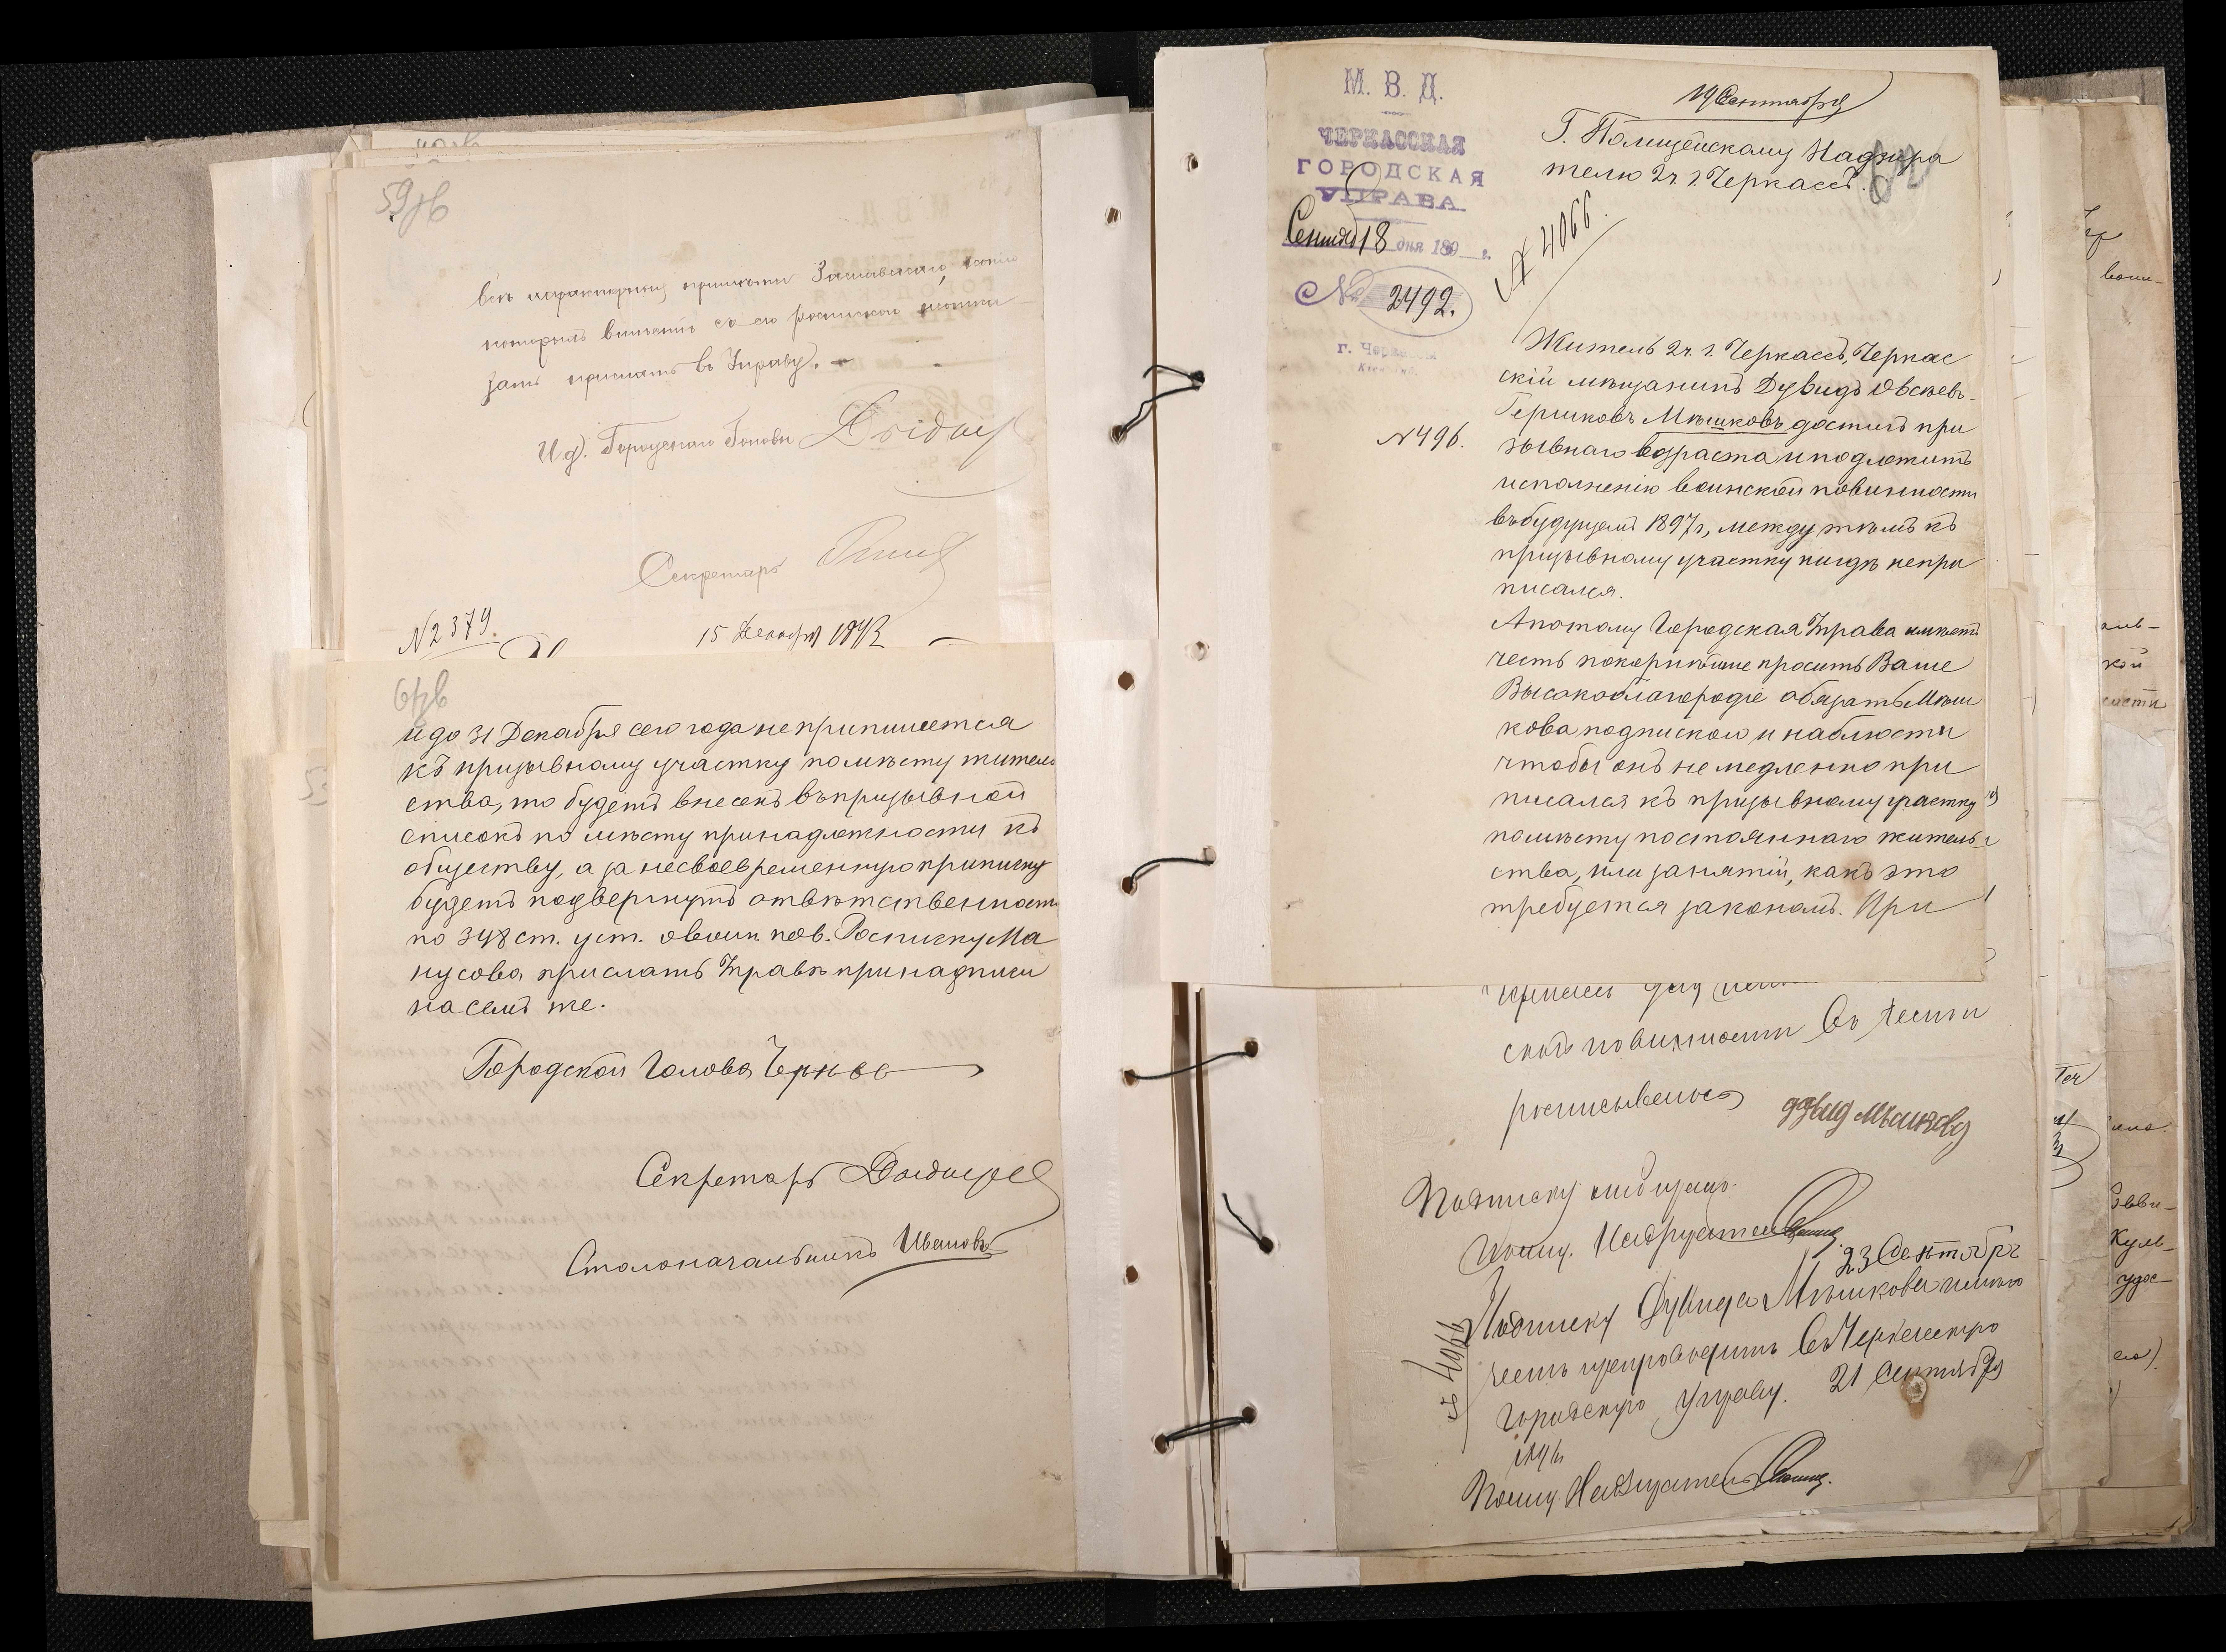 59об
которым
прислать въ Управу.
И.д. Городского Головы
Секретарь
№ 2379.
15 Декабря
61об
и до 31 Декабря сего года не припишется
къ призывному участку по мѣсту житель
ства, то будетъ внесенъ въ призывной
списокъ по мѣсту принадлежности къ
обществу, а за несвоевременную приписку
будетъ подвергнутъ отвѣтственности
по 348 ст. уст. о воин. пов. Росписку Ма
нусова прислать Управѣ при надписи
на семъ же.
Городской Голова
Секретарь
Столоначальникъ Ивановъ
М. В. Д.
ЧЕРКАССКАЯ
ГОРОДСКАЯ
УПРАВА.
Сентяб 18 дня 189 г.
№ 2492.
г.
19 Сентября
Г. Полицейскому Надзира
телю 2 ч. г. Черкассъ.
№ 4066.
Житель 2 ч. г. Черкассъ, Черкас
скій мѣщанинъ Дувидъ Овсѣевъ-
Гершковъ Мѣшковъ достигъ при
№ 496.
зывнаго возраста и подлежитъ
исполненію воинской повинности
въ будущемъ 1897 г., между тѣмъ къ
призывному участку нигдѣ не при
писался.
А потому Городская Управа имѣетъ
честь покорнѣйше просить Ваше
Высокоблагородіе обязать Мѣш
кова подпискою и наблюсти
чтобы онъ немедленно при
писался къ призывному участку
по мѣсту постояннаго житель-
ства, или занятій, какъ это
требуется закономъ. При
повинности въ чемъ и
росписываюсь
Подписку отбиралъ
Помщ. Надзирателя
23 Сентября
Подписку Дувида Мѣшкова имѣю
честь препроводить въ Черкасскую
Городскую Управу. 21 Сентября
№ 4066
Помщ. Надзирателя